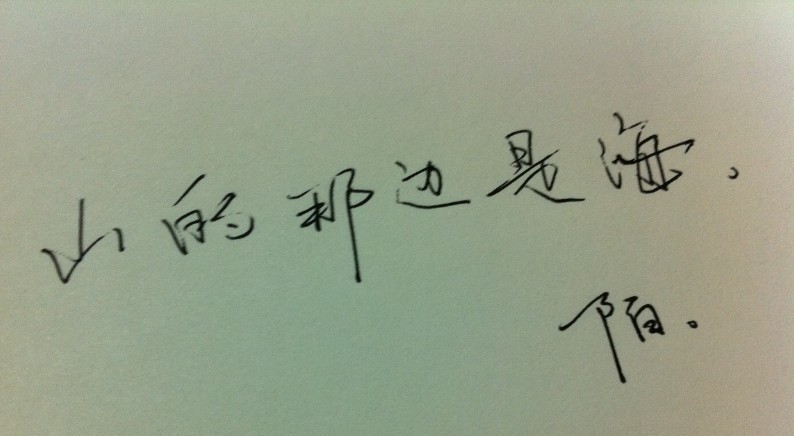 山的那边是海、
陌。